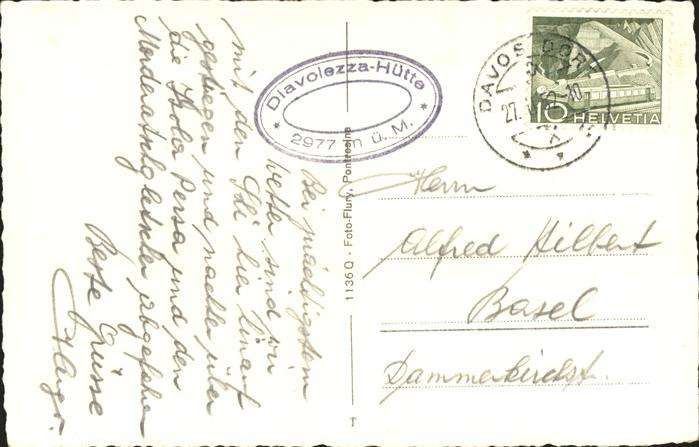 Diavolezza-Hütte
* 2977 m ü. M. *
Bei prächtigstem
Wetter sind wir
mit den Ski hier hinauf
gestiegen und nachher über
die Isola Persa und den
Morteratschgletscher abgefahren
Beste Grüsse
Hugo.
11136 Q - Foto-Flury, Pontresina
DAVOS DORF
27. 10
10 HELVETIA
Herrn
Alfred Hilbert
Basel
Dammerkirchst.